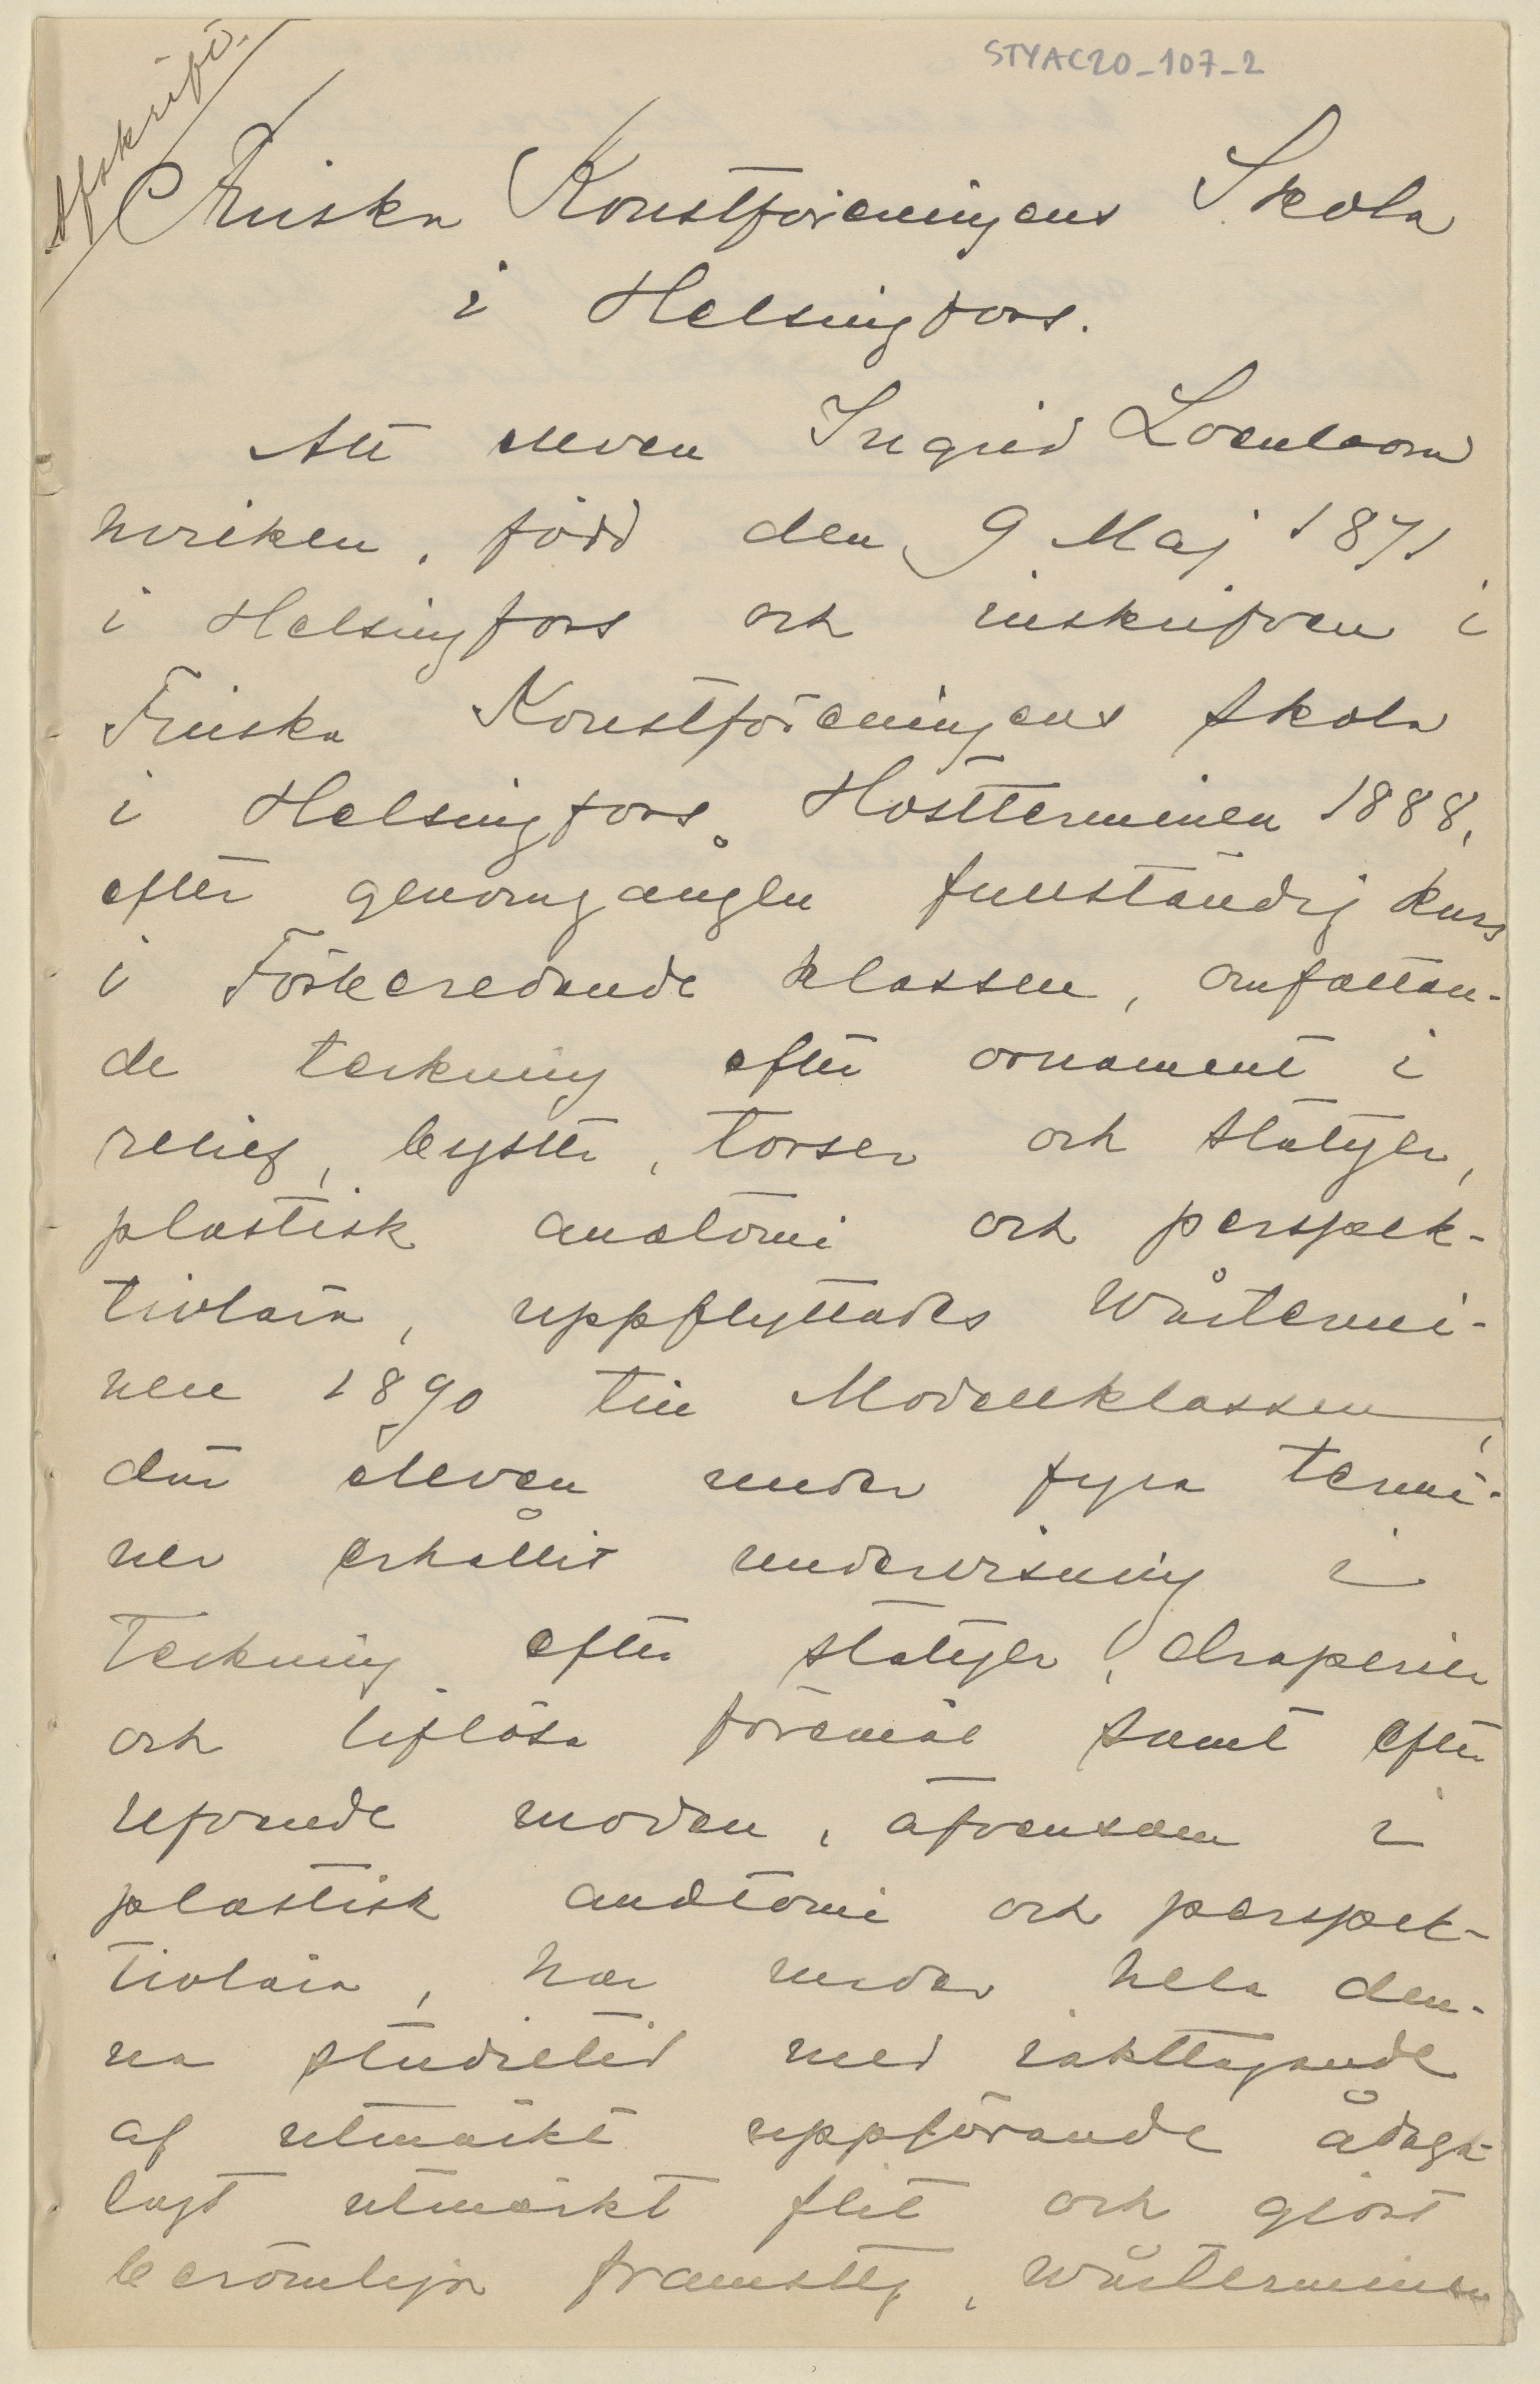 STYAC20_107_2
Afskrift.
Finska Konstföreningens Skola
i Helsingfors.
Att eleven Ingrid
hvilken, född den 9 Maj 1871
i Helsingfors och inskrifven i
Finska Konstföreningens skola
i Helsingfors Höstterminen 1888,
efter genomgången fullständig kurs
i Förberedande klassen, omfattan-
de teckning efter ornament i
relief, byster, torser och statyer,
plastisk anatomi och perspek-
tivlära, uppflyttades Vårtermi-
nen 1890 till Modellklassen,
där eleven under fyra termi-
ner erhållit undervisning i
Teckning efter statyer, draperier
och liflösa föremål samt efter
lefvande modell, äfvensom i
plastisk anatomi och perspek-
tivlära, har under hela den-
na studietid med iakttagande
af utmärkt uppförande ådaga-
lagt utmärkt flit och gjort
berömliga framsteg, Vårterminen